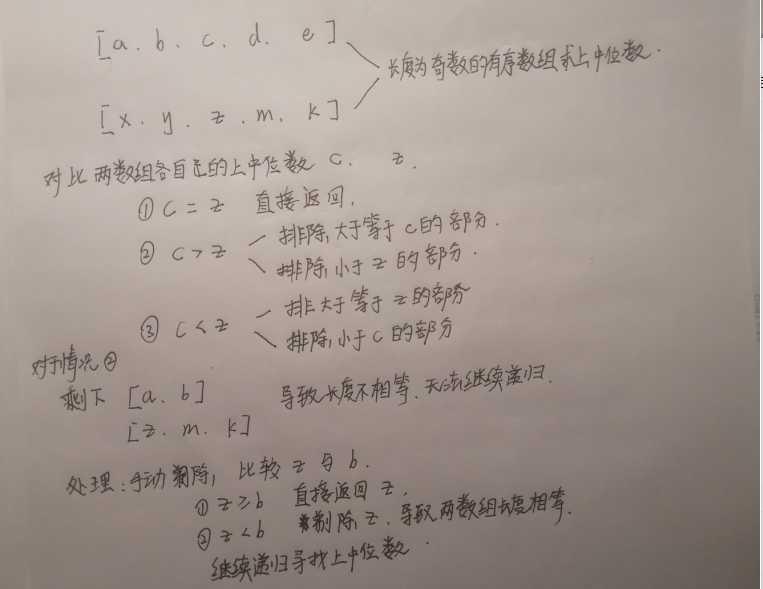 [a. b. c. d. e]
长度为奇数的有序数组求上中位数.
[x. y. z. m. k]
对比两数组各自己的上中位数 c. z.
① c = z 直接返回.
② c > z 排除,大于等于c的部分.
排除,小于z的部分.
③ c < z 排大于等于z的部分
排除,小于c的部分
对于情况②
剩下 [a. b] 导致长度不相等.无法继续递归.
[z. m. k]
处理:手动剔除, 比较 z 与 b.
① z ≥ b 直接返回 z.
② z < b 剔除,z. 导致两数组长度相等.
继续递归寻找上中位数.